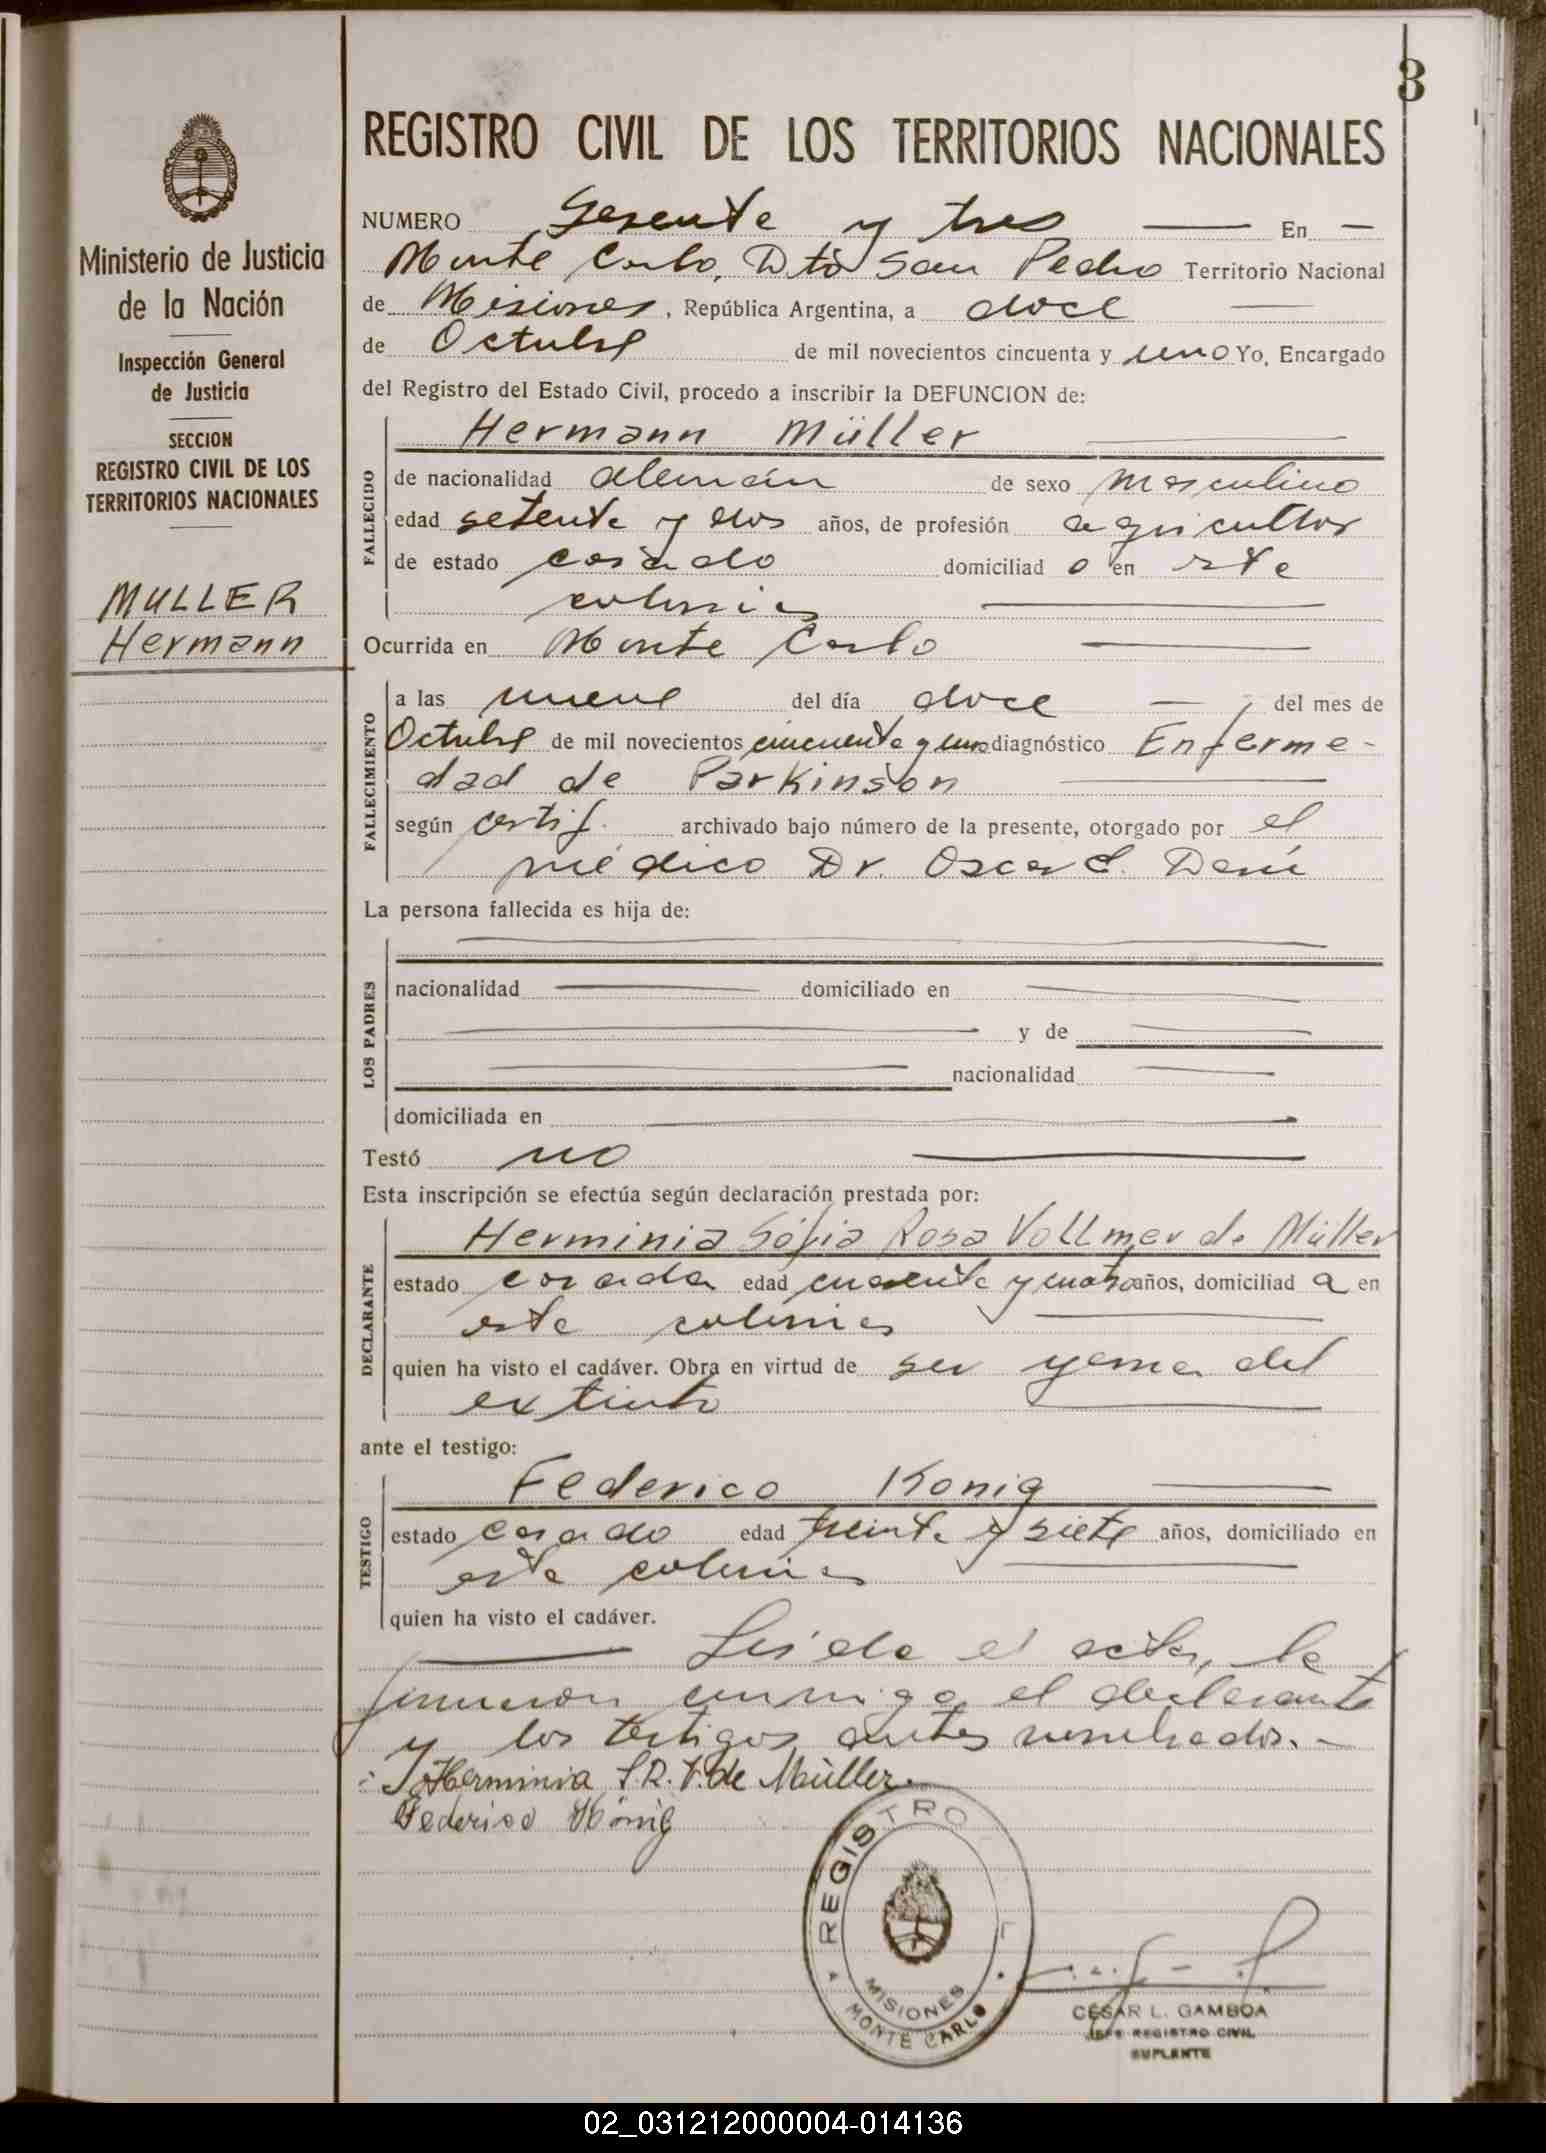 3
REGISTRO CIVIL DE LOS TERRITORIOS NACIONALES
Ministerio de Justicia
de la Nación
Inspección General
de Justicia
SECCION
REGISTRO CIVIL DE LOS
TERRITORIOS NACIONALES
MULLER
Hermann
NUMERO Sesenta y tres En
Monte Carlo, Dto San Pedro Territorio Nacional
de Misiones, República Argentina, a doce
de Octubre de mil novecientos cincuenta y uno Yo, Encargado
del Registro del Estado Civil, procedo a inscribir la DEFUNCION de:
FALLECIDO
Hermann Müller
de nacionalidad alemán de sexo masculino
edad setenta y dos años, de profesión agricultor
de estado casado domiciliad o en esta
colonia
Ocurrida en Monte Carlo
FALLECIMIENTO
a las nueve del día doce del mes de
Octubre de mil novecientos cincuenta y uno diagnóstico Enferme-
dad de Parkinson
según certif. archivado bajo número de la presente, otorgado por el
médico Dr. Oscar
La persona fallecida es hija de:
LOS PADRES
nacionalidad domiciliado en
y de
nacionalidad
domiciliada en
Testó no
Esta inscripción se efectúa según declaración prestada por:
DECLARANTE
Herminia Sofia Rosa Vollmer de Müller
estado casada edad cuarenta y cuatro años, domiciliad a en
esta colonia
quien ha visto el cadáver. Obra en virtud de ser yerna del
extinto
ante el testigo:
TESTIGO
Federico Konig
estado casado edad treinta y siete años, domiciliado en
esta colonia
quien ha visto el cadáver.
Leida el acta, la
firmaron conmigo, el declarante
y los testigos antes nombrados.-
Herminia S.R.V. de Müller.
Federico König
REGISTRO
MISIONES
MONTE CARLO
CÉSAR L. GAMBOA
JEFE REGISTRO CIVIL
SUPLENTE
02_031212000004-014136